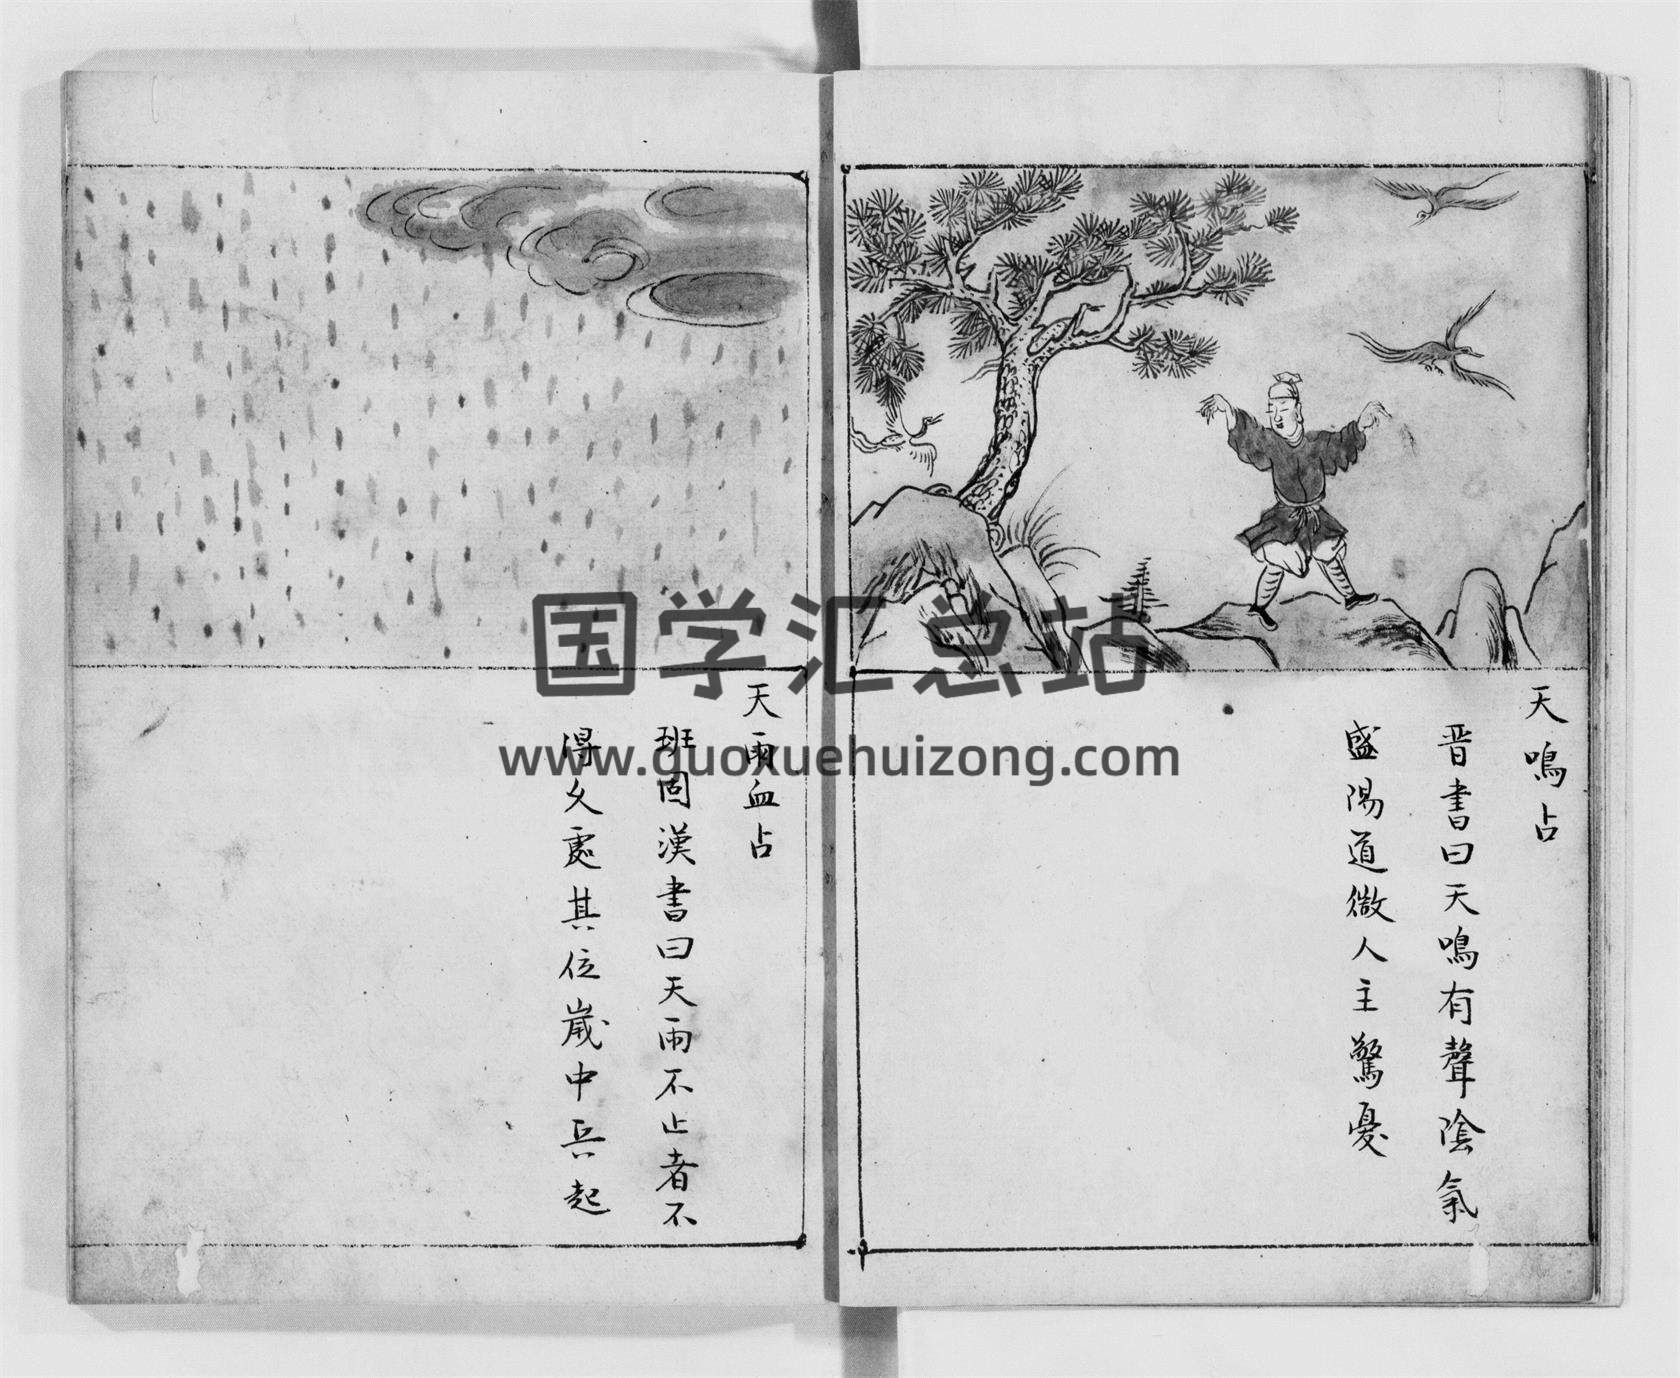 天鳴占
晋書曰天鳴有聲陰氣
盛陽道微人主驚憂
天雨血占
班固漢書曰天雨不止者不
得久處其位歲中兵起
国学汇总站
www.guoxuehuizong.com